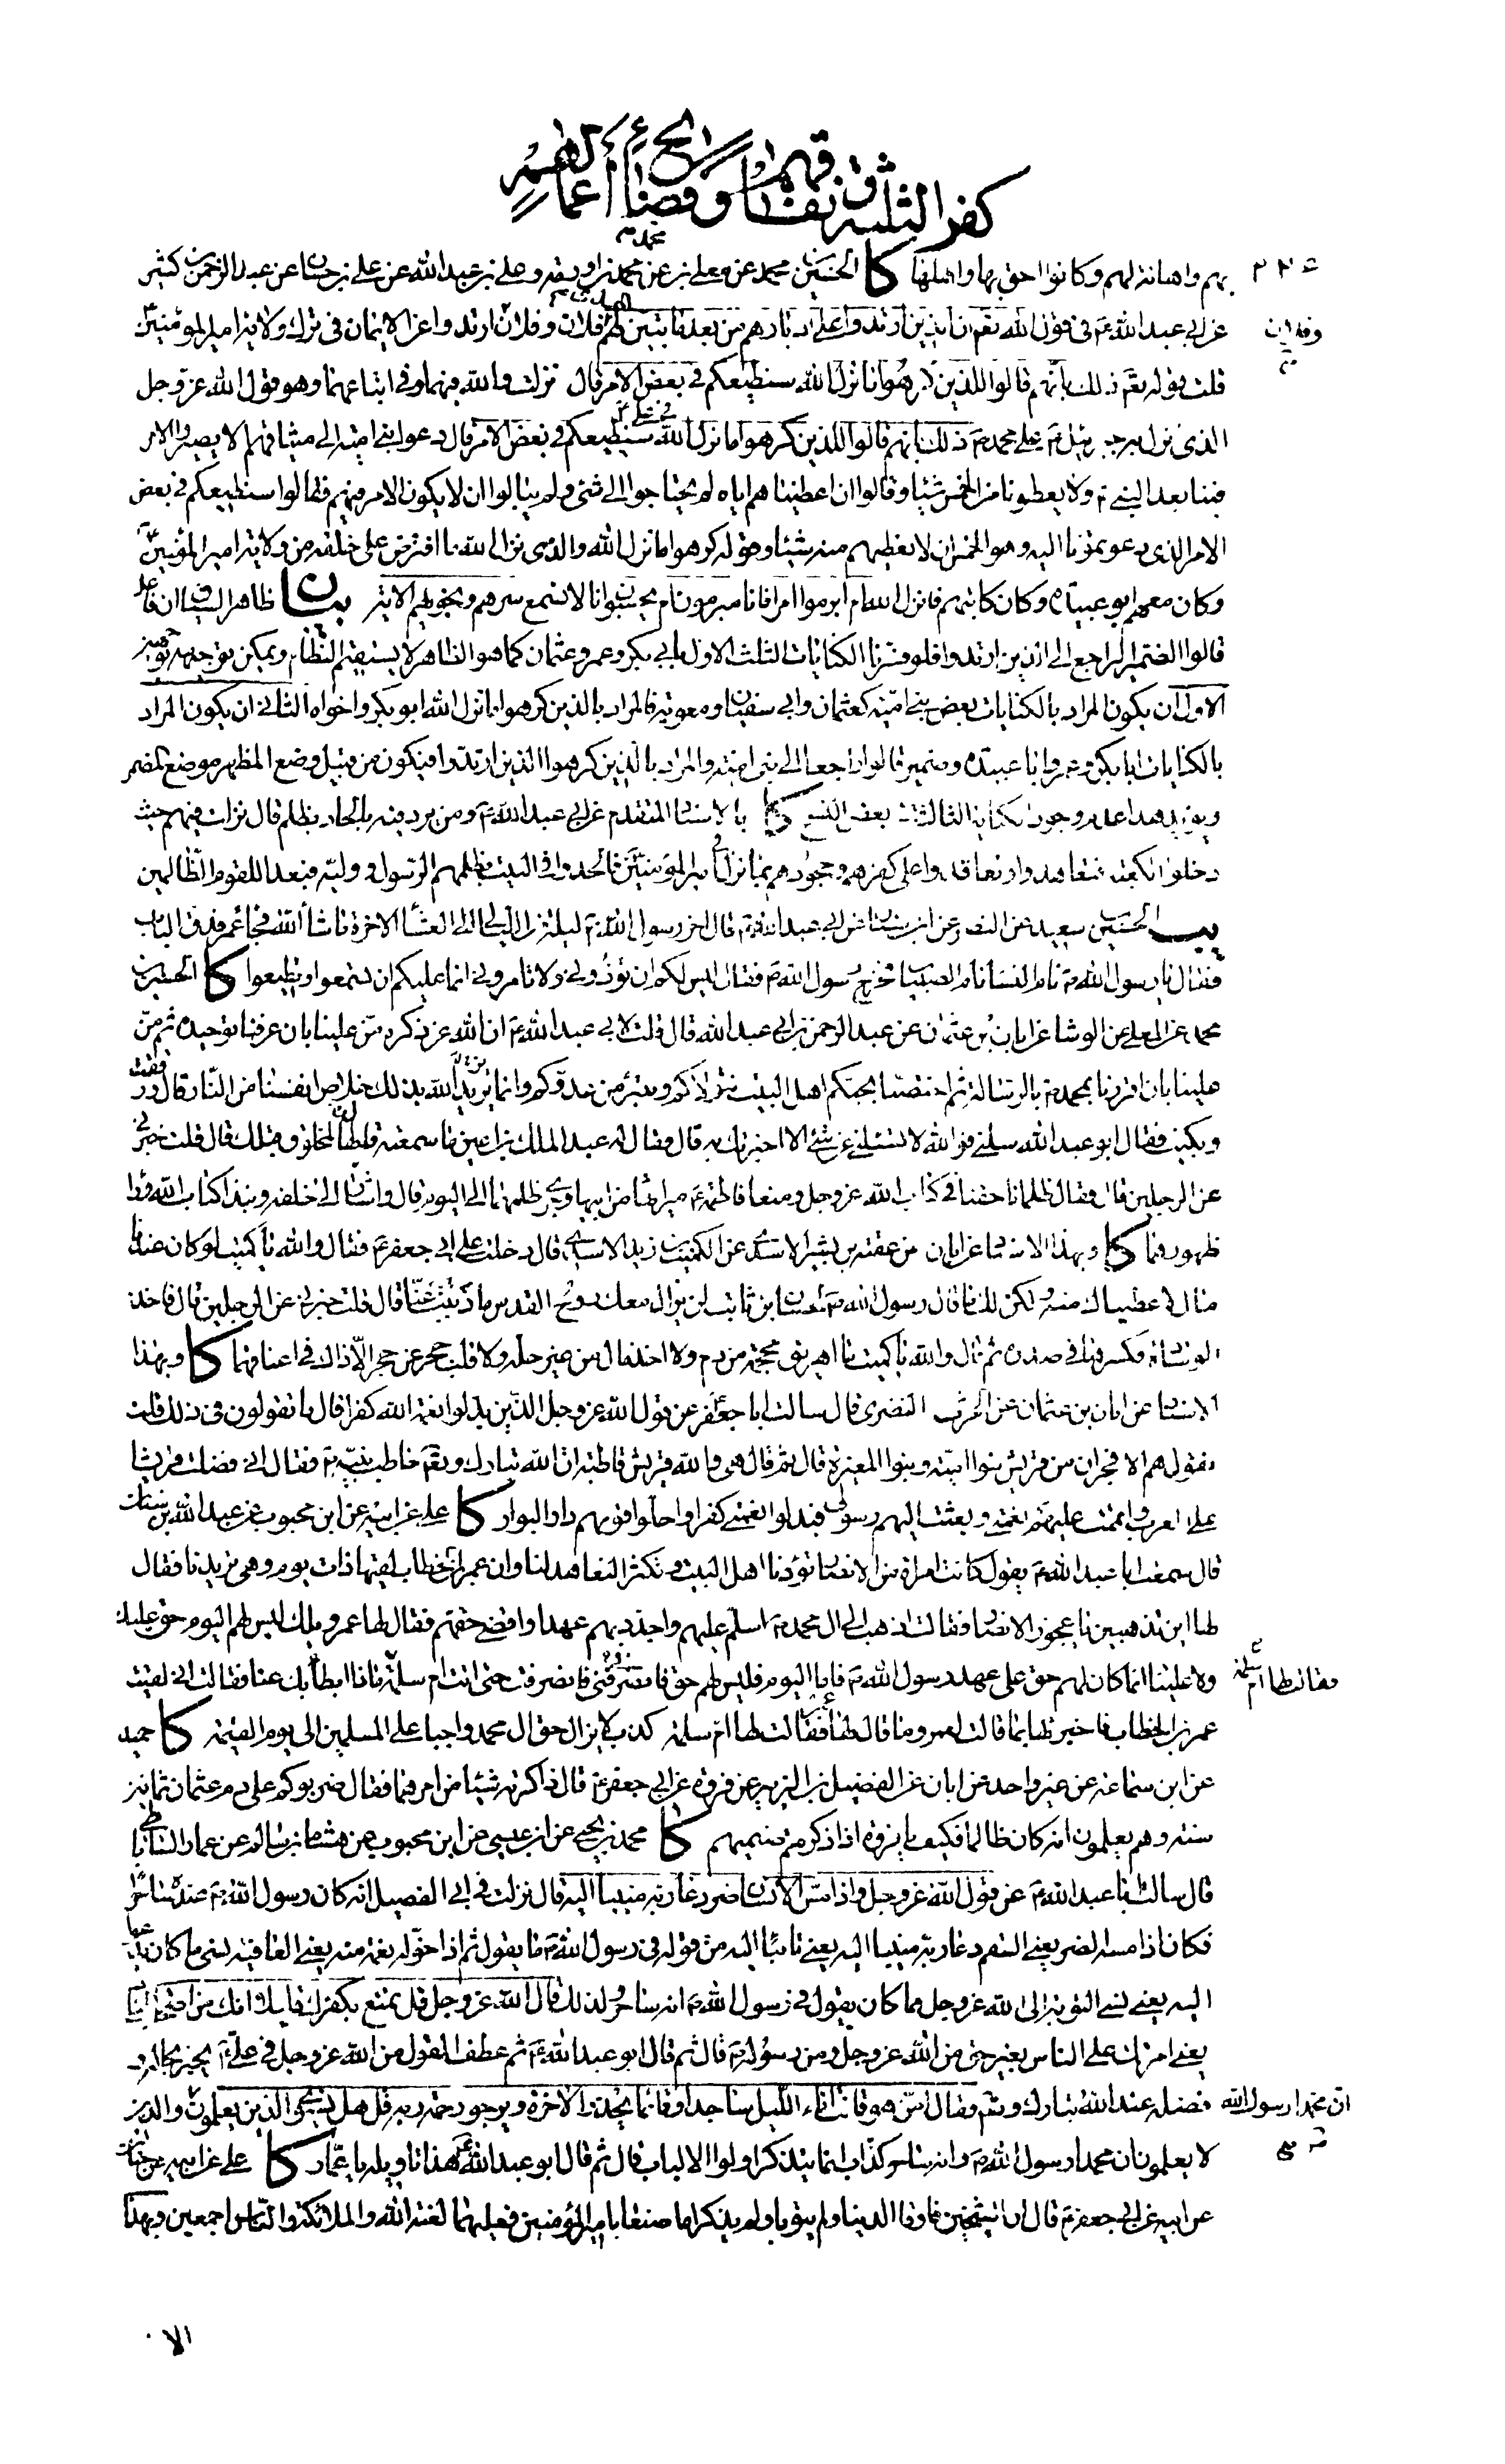 كفر الثلثة و نفاقهم وفضايح أعمالهم
٢٢٤
بهم واهانة لهم وكانوا احق بها واهلها كا الحسين بن محمد عن معلى بن محمد عن محمد بن اورمة وعلى بن عبد الله عن على بن حسان عن عبد الرحمن بن كثير
عن ابى عبد الله ع فى قول الله تعم ان الذين ارتدوا على ادبارهم من بعد ما تبين لهم الهدى فلان وفلان وفلان ارتدوا عن الايمان فى ترك ولاية امير المؤمنين ع
قلت قوله تعم ذلك بانهم قالوا للذين كرهوا ما نزل الله سنطيعكم فى بعض الامر قال نزلت والله فيهما وفى اتباعهما وهو قول الله عز وجل
الذى نزل به جبرئيل ع على محمد ص ذلك بانهم قالوا للذين كرهوا ما نزل الله فى على ع سنطيعكم فى بعض الامر قال دعوا بنى امية الى ميثاقهم الا يصيروا الامر
فينا بعد النبى ص ولا يعطونا من الخمس شيئا وقالوا ان اعطيناهم اياه لم يحتاجوا الى شئ ولم يبالوا ان لا يكون الامر فيهم فقالوا سنطيعكم فى بعض
الامر الذى دعوتمونا اليه وهو الخمس ان لا نعطيهم منه شيئا وقوله كرهوا ما نزل الله والذى نزل الله ما افترض على خلقه من ولاية امير المؤمنين ع
وكان معهم ابو عبيدة وكان كاتبهم فانزل الله ام ابرموا امرا فانا مبرمون ام يحسبون انا لا نسمع سرهم ونجويهم الاية بيان ظاهر السياق ان فاعل
قالوا الضمير الراجع الى الذين ارتدوا فلو فسرنا الكنايات الثلث الاول بابى بكر وعمر وعثمان كما هو الظاهر لا يستقيم النظام ويمكن توجيهه بوجهين
الاول ان يكون المراد بالكنايات بعض بنى امية كعثمان وابى سفيان ومعوية فالمراد بالذين كرهوا ما نزل الله ابو بكر واخواه الثانى ان يكون المراد
بالكنايات ابا بكر وعمر وابا عبيدة وضمير قالوا راجعا الى بنى امية والمراد بالذين كرهوا الذين ارتدوا فيكون من قبيل وضع المظهر موضع المضمر
ويؤيد هذا عدم وجود الكناية الثالثة فى بعض النسخ كا بالاسناد المتقدم عن ابى عبد الله ع ومن يرد فيه بالحاد بظلم قال نزلت فيهم حيث
دخلوا الكعبة فتعاهدوا وتعاقدوا على كفرهم وجحودهم بما نزل فى امير المؤمنين ع فالحدوا فى البيت بظلمهم الرسول ووليه فبعدا للقوم الظالمين
يب الحسين بن سعيد عن النضر عن ابن سنان عن ابى عبد الله ع قال اخر رسول الله ص ليلة من الليالى العشاء الاخرة ما شاء الله فجاء عمر فدق الباب
فقال يا رسول الله ص نام النساء نام الصبيان فخرج رسول الله ص فقال ليس لكم ان تؤذونى ولا تامرونى انما عليكم ان تسمعوا وتطيعوا كا الحسين بن
محمد عن المعلى عن الوشا عن ابان بن عثمان عن عبد الرحمن بن ابى عبد الله قال قلت لابى عبد الله ع ان الله عز ذكره من علينا بان عرفنا توحيده ثم من
علينا بان اقررنا بمحمد ص بالرسالة ثم اختصنا بحبكم اهل البيت نتولاكم ونتبرء من عدوكم وانما يريد الله بذلك خلاص انفسنا من النار قال ورققت
وبكيت فقال ابو عبد الله سلنى فوالله لا تسئلنى عن شئ الا اخبرتك به قال فقال له عبد الملك بن اعين ما سمعته قالها لمخلوق قبلك قال قلت خبرنى
عن الرجلين قال فقال ظلمانا حقنا فى كتاب الله عز وجل ومنعا فاطمة ع ميراثها من ابيها وجرى ظلمهما الى اليوم قال واشار الى خلفه ونبذا كتاب الله وراء
ظهورهما كا وبهذا الاسناد عن ابان عن عقبة بن بشير الاسدى عن الكميت بن زيد الاسدى قال دخلت على ابى جعفر ع فقال والله يا كميت لو كان عندنا
مال لاعطيناك منه ولكن لك ما قال رسول الله ص لحسان بن ثابت لن يزال معك روح القدس ما ذببت عنا قال قلت خبرنى عن الرجلين قال فاخذ
الوسادة فكسرها فى صدره ثم قال والله يا كميت ما اهريق محجمة من دم ولا اخذ مال من غير حله ولا قلب حجر عن حجر الا ذاك فى اعناقهما كا وبهذا
الاسناد عن ابان بن عثمان عن الحرث النضرى قال سالت ابا جعفر ع عن قول الله عز وجل الذين بدلوا نعمة الله كفرا قال ما تقولون فى ذلك قلت
نقول هم الافجران من قريش بنوا امية وبنوا المغيرة قال ثم قال هى والله قريش قاطبة ان الله تبارك وتعم خاطب نبيه ص فقال انى فضلت قريشا
على العرب واتممت عليهم نعمتى وبعثت اليهم رسولى فبدلوا نعمتى كفرا واحلوا قومهم دار البوار كا على عن ابيه عن ابن محبوب عن عبد الله بن سنان
قال سمعت ابا عبد الله ع يقول كانت امراة من الانصار تودنا اهل البيت وتكثر التعاهد لنا وان عمر بن الخطاب لقيها ذات يوم وهى تريدنا فقال
لها اين تذهبين يا عجوز الانصار فقالت اذهب الى ال محمد ص اسلم عليهم واجدد بهم عهدا واقضى حقهم فقال لها عمر ويلك ليس لهم اليوم حق عليك
ولا علينا انما كان لهم حق على عهد رسول الله ص فاما اليوم فليس لهم حق فانصرفى فانصرفت حتى اتت ام سلمة فقالت لها ام سلمة ماذا ابطا بك عنا فقالت انى لقيت
عمر بن الخطاب فاخبرتها بما قالت لعمر وما قال لها عمر فقالت لها ام سلمة كذب لا يزال حق ال محمد واجبا على المسلمين الى يوم القيمة كا حميد
عن ابن سماعة عن غير واحد عن ابان عن الفضيل بن الزبير عن فروة عن ابى جعفر ع قال ذاكرته شيئا من امرهما فقال ضربوكم على دم عثمان ثمانين
سنة وهم يعلمون انه كان ظالما فكيف يا فروة اذا ذكرتم صنميهم كا محمد بن يحيى عن ابن عيسى عن ابن محبوب عن هشام بن سالم عن عمار الساباطى
قال سالت ابا عبد الله ع عن قول الله عز وجل واذا مس الانسان ضر دعا ربه منيبا اليه قال نزلت فى ابى الفصيل انه كان رسول الله ص عنده ساحرا
فكان اذا مسه الضر يعنى السقم دعا ربه منيبا اليه يعنى تائبا اليه من قوله فى رسول الله ص ما يقول ثم اذا خوله نعمة منه يعنى العافية نسى ما كان يدعوا
اليه يعنى نسى التوبة الى الله عز وجل مما كان يقول فى رسول الله ص انه ساحر ولذلك قال الله عز وجل قل تمتع بكفرك قليلا انك من اصحاب النار
يعنى امرتك على الناس بغير حق من الله عز وجل ومن رسوله ص قال ثم قال ابو عبد الله ع ثم عطف القول من الله عز وجل فى على ع يخبر بحاله و
فضله عند الله تبارك وتعم فقال امن هو قانت اناء الليل ساجدا وقائما يحذر الاخرة ويرجو رحمة ربه قل هل يستوى الذين يعلمون ان محمدا رسول الله والذين
لا يعلمون ان محمدا رسول الله ص وانه ساحر كذاب انما يتذكر اولوا الالباب قال ثم قال ابو عبد الله ع هذا تاويله يا عمار كا على عن ابيه عن حنان
عن ابيه عن ابى جعفر ع قال ان الشيخين فارقا الدنيا ولم يتوبا ولم يذكرا ما صنعا بامير المؤمنين فعليهما لعنة الله والملائكة والناس اجمعين وبهذا
الا